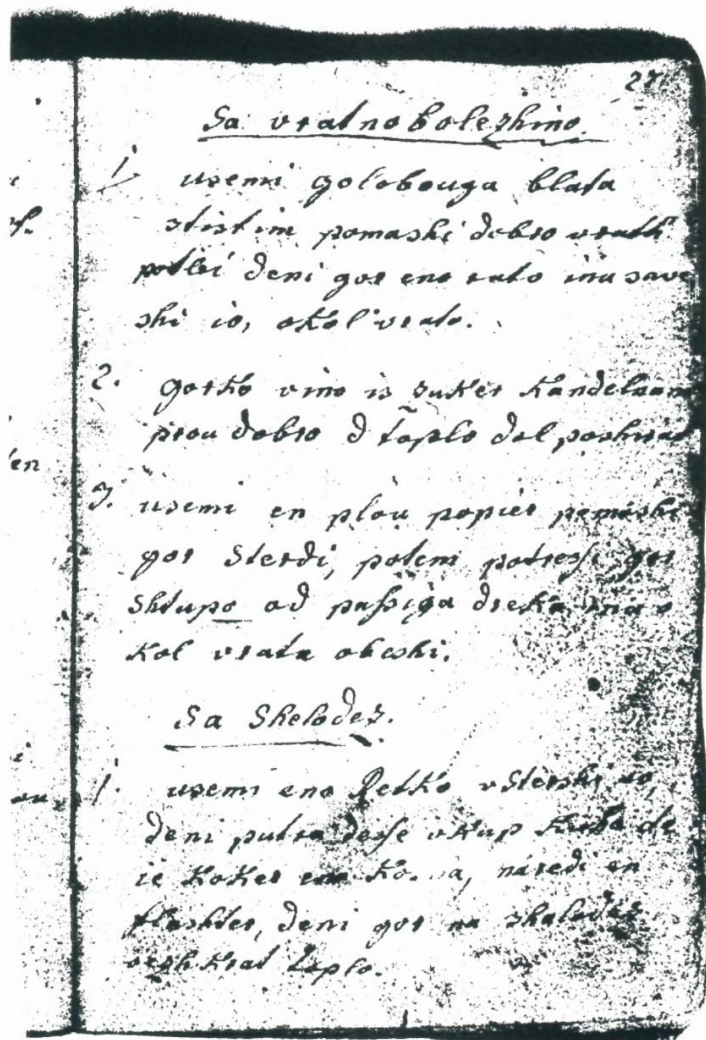 27
Sa vratno boleshino.
1. usemi golobouga blata
stistim pomashi dobro vrath
potlei deni gor eno ruto inu save
shi io, okol vrato.
2. gorko vino is suker kandelnam
prou dobro d toplo dol
3. usemi en plou popier pomashi
gor Sterdi, potem potressi gor
Shtupo od passiga dreka inu o
kol vratu obeshi.
Sa Shelodez.
1. usemi eno Retko vStershi io,
deni putra desse vkup kuha de
ie koker ena, naredi en
flashter, deni gor na shelodez
vezhkrat toplo.